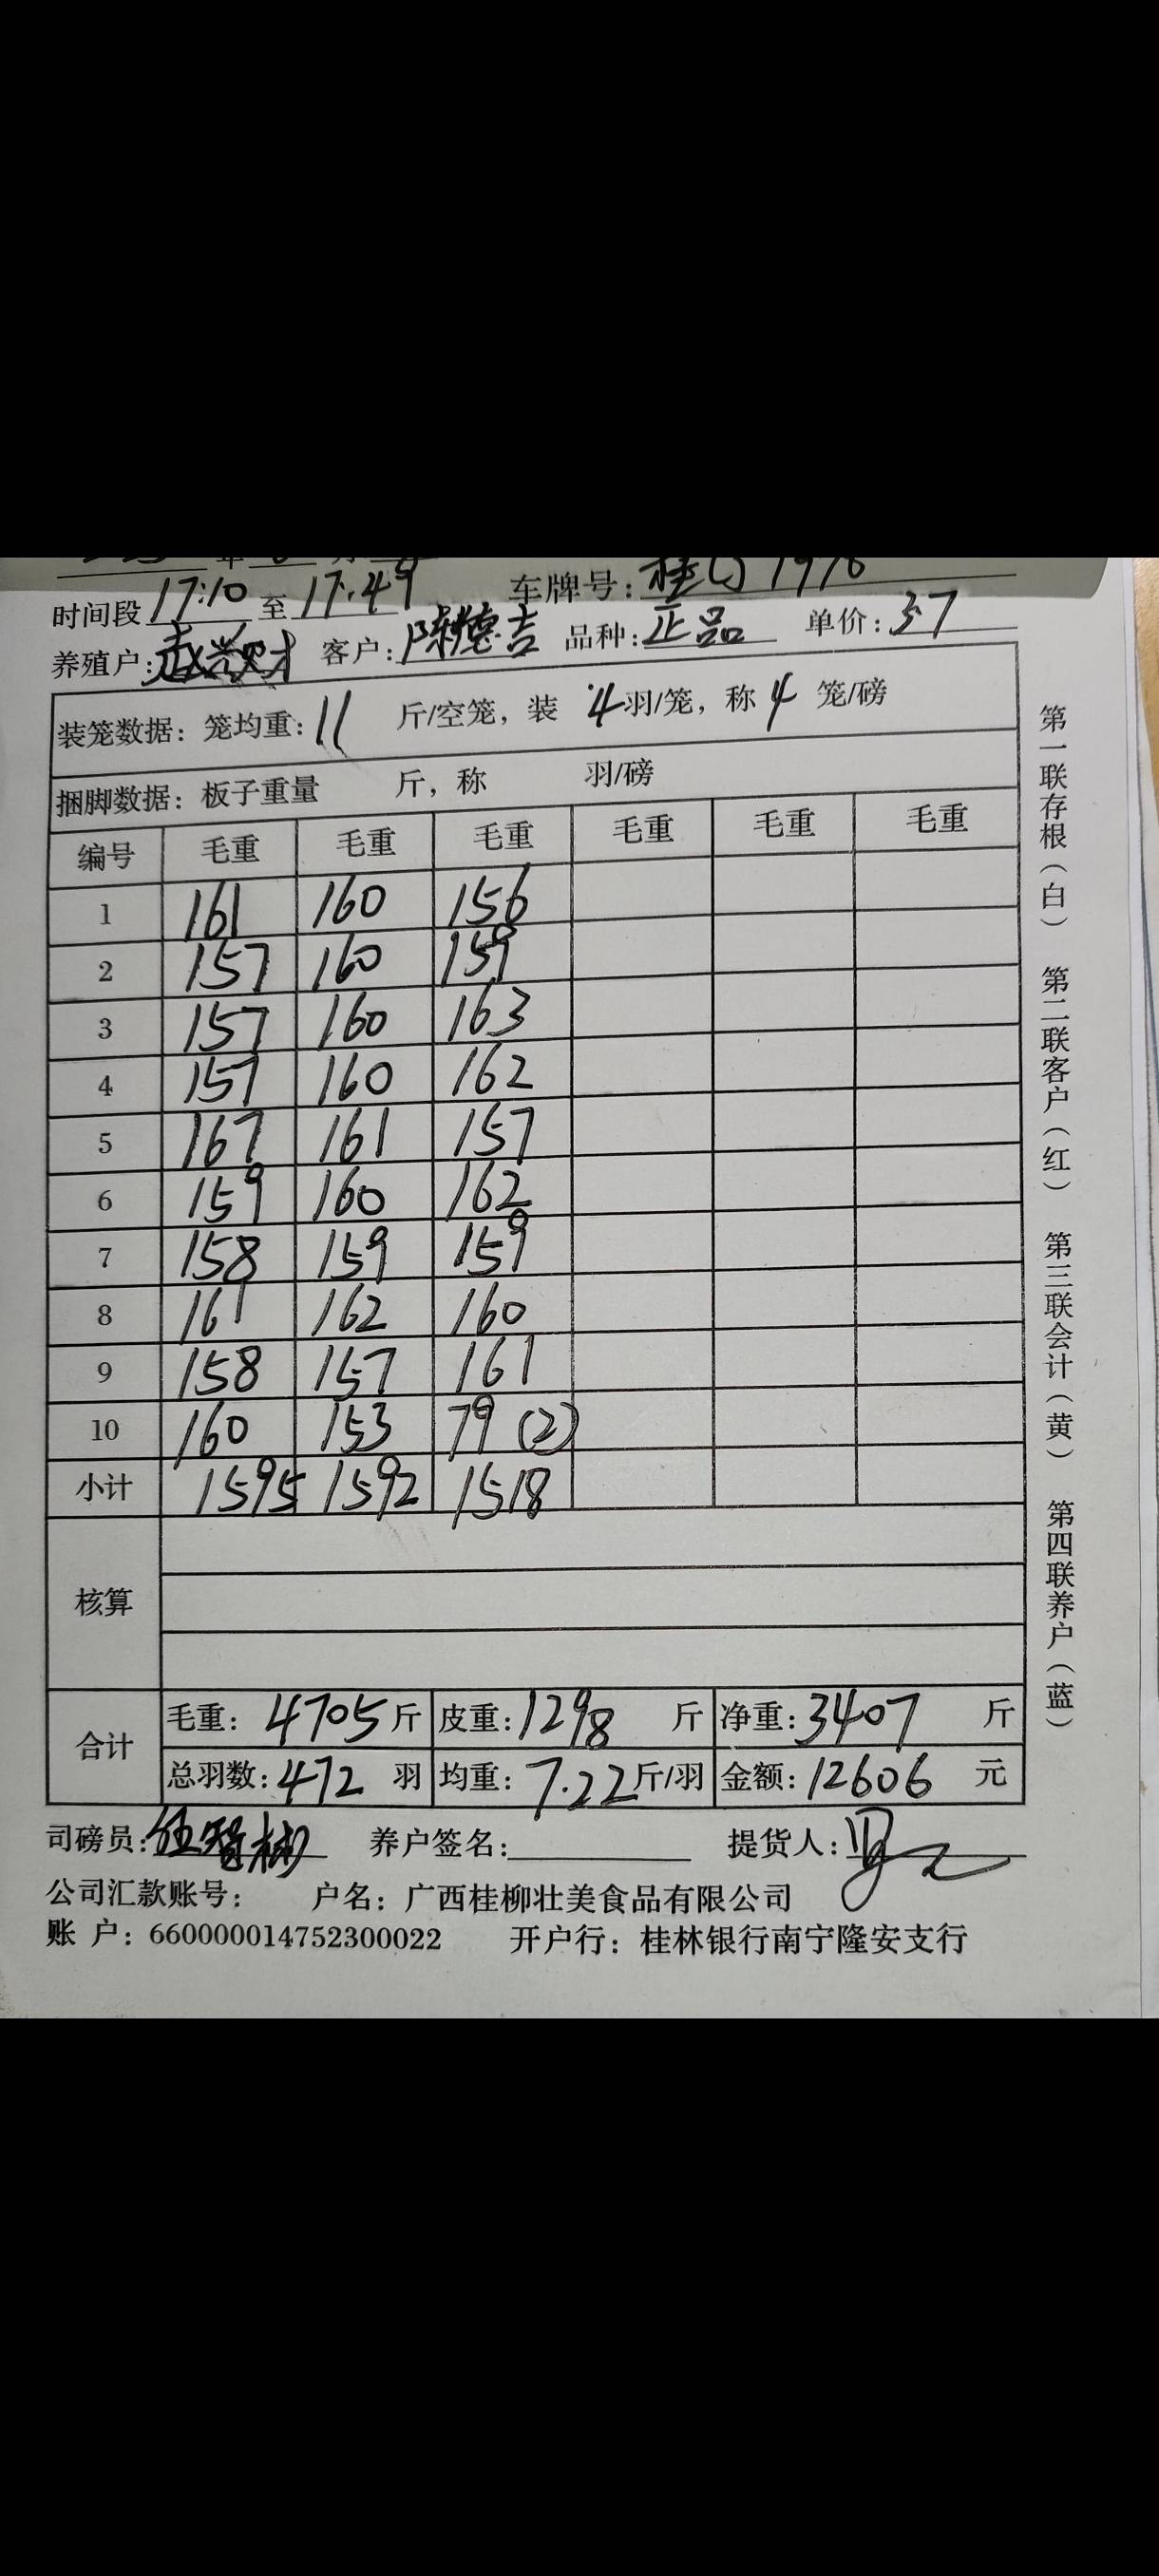 时间段 17:10 至 17:49 车牌号:
养殖户: 赵兴财 客户: 陈德吉 品种: 正品 单价: 37
装笼数据: 笼均重: 11 斤/空笼, 装 4 羽/笼, 称 4 笼/磅
捆脚数据: 板子重量 斤, 称 羽/磅
编号 毛重 毛重 毛重 毛重 毛重 毛重
1 161 160 156
2 157 160 159
3 157 160 163
4 157 160 162
5 167 161 157
6 159 160 162
7 158 159 159
8 161 162 160
9 158 157 161
10 160 153 79 (2)
小计 1595 1592 1518
核算
合计 毛重: 4705 斤 皮重: 1298 斤 净重: 3407 斤
总羽数: 472 羽 均重: 7.22 斤/羽 金额: 12606 元
司磅员: 伍智彬 养户签名: 提货人:
公司汇款账号: 户名: 广西桂柳壮美食品有限公司
账 户: 660000014752300022 开户行: 桂林银行南宁隆安支行
第一联存根(白) 第二联客户(红) 第三联会计(黄) 第四联养户(蓝)